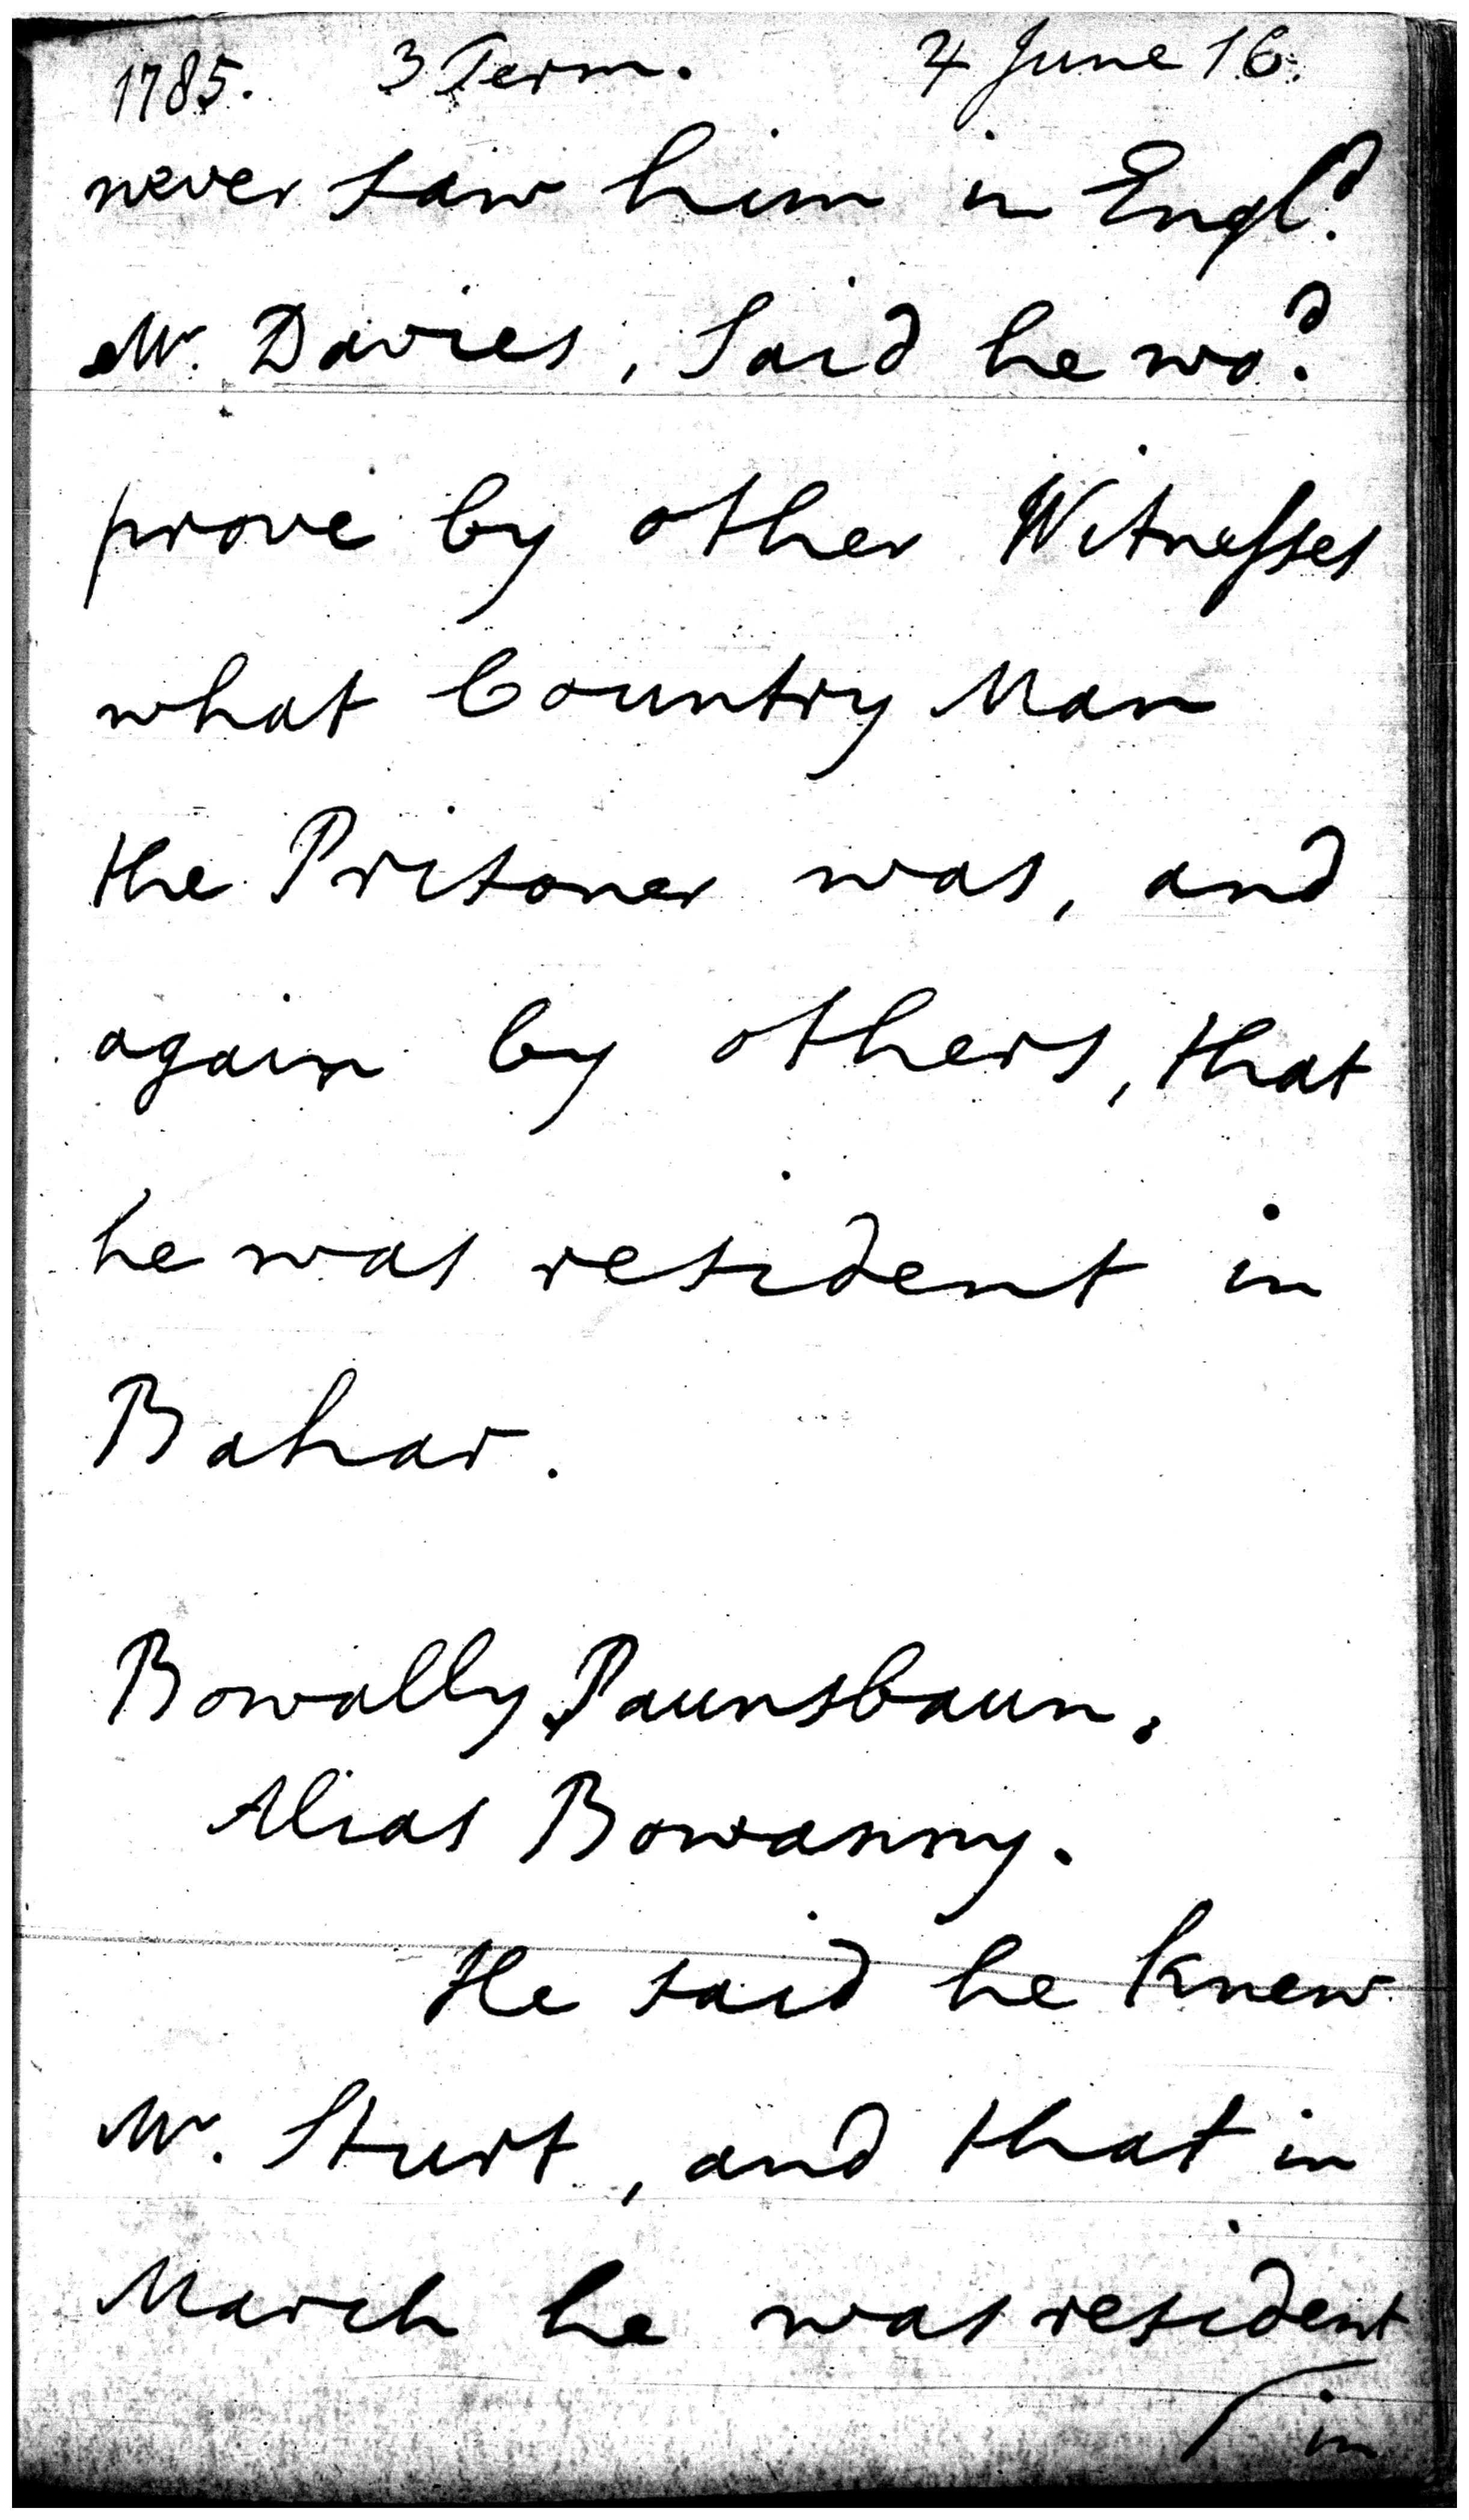 1785. 3 Term. 4 June 16.
never saw him in Engl.d
Mr. Davies, Said he wo.d
prove by other Witnesses
what Country Man
the Prisoner was, and
again by others, that
he was resident in
Bahar.
Bowally Paunsbaun.
Alias Bowanny.
He said he knew
Mr. Sturt, and that in
March he was resident
in